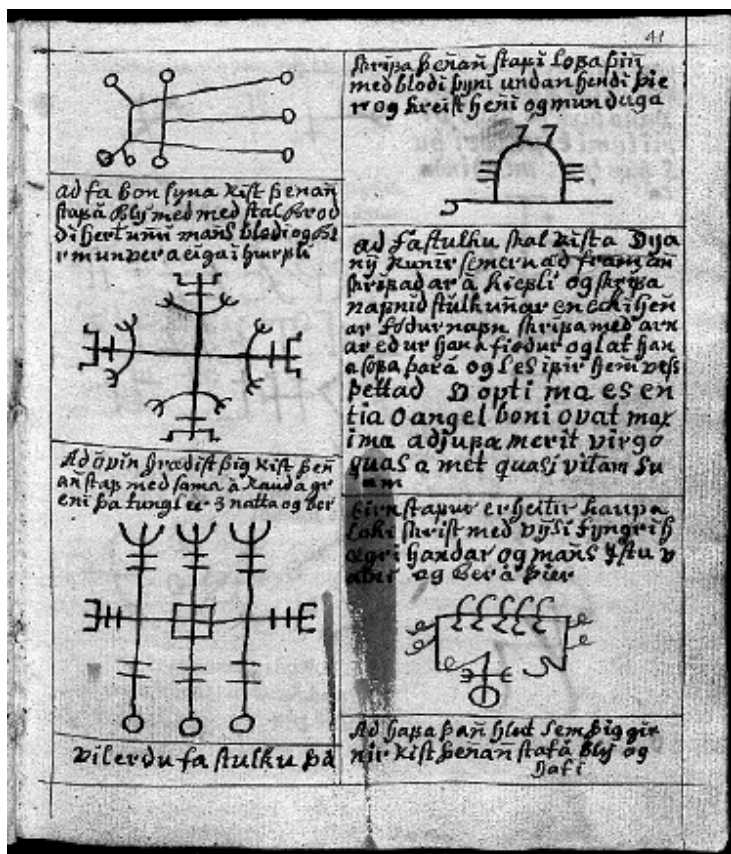 41
ad fa bon syna Rist þenañ
staf á blý med med stal brod
di hertunñ mañs blodi og be
r mun vera eiga i hwrfli
Ad óvin hrædist þig Rist þeñ
añ staf med sama á Rauda gr
eni þa tungl er 3 natta og ber
vilerdu fa stulku þá
skrifa þenañ staf i Lofa þiñ
med blodi þynu undan hendi þie
r og kreist heñi og mun duga
ad fa stulku skal Rista
skrifadar á kiefli og skrifa
nafnid stulkuñar en ecki heñ
ar fodur nafn skrifa med arn
ar edur hana fiodur og lat han
a sofa þar á og Les ifir heñi vess
þettad O opti ma es en
tia O angel boni ovat max
ima adjuva merit virgo
quas a met quasi vitam su
am
stafur er heitir kaupa
Loki skrist med vysi fyngri h
ægri handar og mañs ystu v
og ber á þier
Ad hafa þañ hlut sem þig gir
nir Rist þenañ staf á blý og
hafi